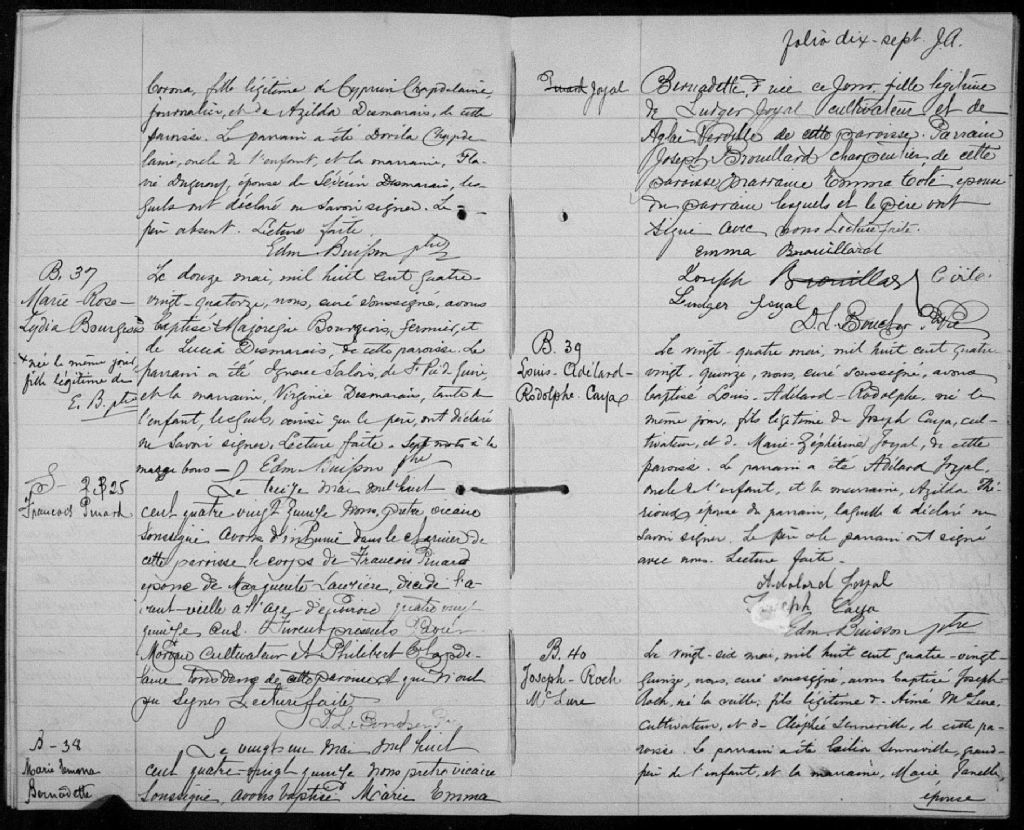 Corona, fille légitime de Cyprien Chapdelaine,
journalier, et de Azilda Desmarais, de cette
paroisse. Le parrain a été Dorila Chapde
laine, oncle de l'enfant, et la marraine, Fla-
vie épouse de Séverin Desmarais, les
quels ont déclaré ne savoir signer. Le
père absent. Lecture faite.
Edm Buisson ptre
B. 37
Marie-Rose-
Lydia Bourgeois
+ née le même jour,
fille légitime de
E. B. ptre
Le douze mai, mil huit cent quatre
vingt-quatorze, nous, curé soussigné, avons
baptisé Majorique Bourgeois, fermier, et
de Lucia Desmarais, de cette paroisse. Le
parrain a été Ignace Salois, de St Pie de Guire,
et la marraine, Virginie Desmarais, tante de
l'enfant, lesquels, ainsi que le père, ont déclaré
ne savoir signer. Lecture faite. Sept mots à la
marge bons - Edm Buisson ptre
S - 25
Francois Pinard
Le treize mai mil huit
cent quatre vingt quinze nous, pretre vicaire
soussigné avons inhumé dans le charnier de
cette paroisse le corps de Francois Pinard
epoux de Marguerite Lauzière, décédé l'a
vant-vieille a l'age d'environ quatre vingt
quinze ans. Furent présents Xavier
cultivateur et Philibert Chapde-
laine tous deux de cette paroisse qui n'ont
su signer Lecture faite
B - 38
Marie Emma
Bernadette
Le vingt un mai mil huit
cent quatre-vingt quinze nous pretre vicaire
soussigné, avons baptisé Marie Emma
folio dix-sept. J.A.
Pinard Joyal
Bernadette, née ce jour, fille légitime
de Ludger Joyal cultivateur et de
Aglaé Verville de cette paroisse. Parrain
Joseph Brouillard charpentier, de cette
paroisse, marraine Emma Coté epouse
du parrain lesquels et le père ont
signé avec nous Lecture faite.
Emma Brouillard
Joseph Brouillard
Ludger Joyal
B. 39
Louis-Adélard-
Rodolphe-Caya
Le vingt-quatre mai, mil huit cent quatre-
vingt-quinze, nous, curé soussigné, avons
baptisé Louis-Adélard-Rodolphe, né le
même jour, fils légitime de Joseph Caya, cul-
tivateur, et de Marie-Zéphirine Joyal, de cette
paroisse. Le parrain a été Adélard Joyal,
oncle de l'enfant, et la marraine, Azilda Thé-
rioux, épouse du parrain, laquelle a déclaré ne
savoir signer. Le père et le parrain ont signé
avec nous. Lecture faite.
Adolard Joyal
Joseph Caya
Edm. Buisson ptre
B. 40
Joseph-Roch
McLure
Le vingt-six mai, mil huit cent quatre-vingt-
quinze, nous, curé soussigné, avons baptisé Joseph-
Roch, né la veille, fils légitime de Aimé McLure,
cultivateur, et de Cléophée Senneville, de cette pa-
roisse. Le parrain a été Senneville, grand-
père de l'enfant, et la marraine, Marie
épouse